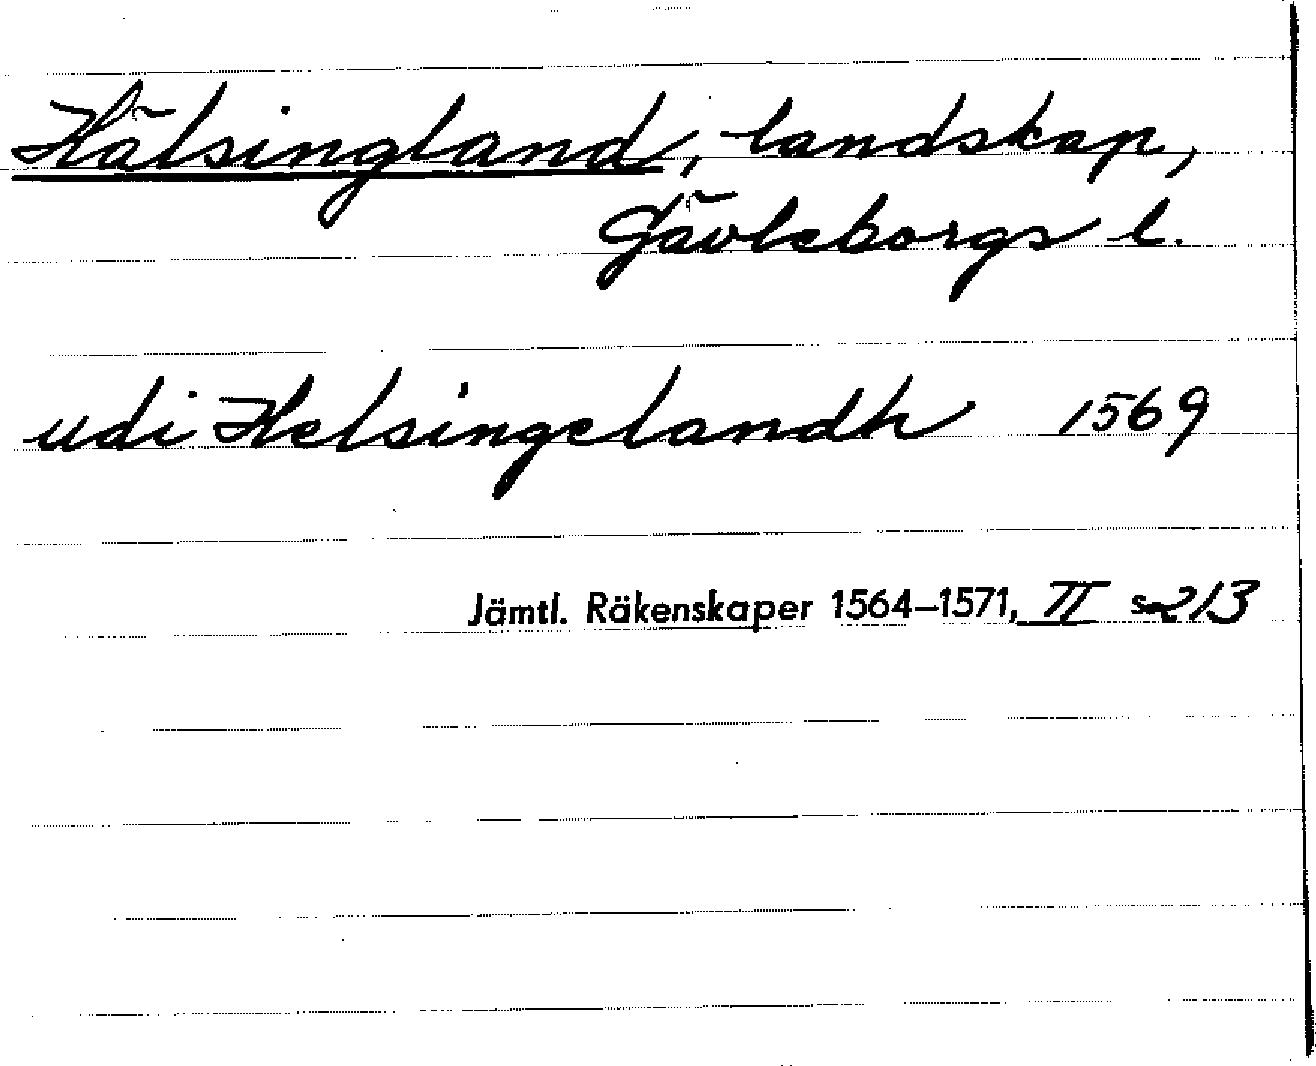 Hälsingland, landskap,
Gävleborgs l.
udi Helsingelandh 1569
Jämtl. Räkenskaper 1564–1571, II s. 213